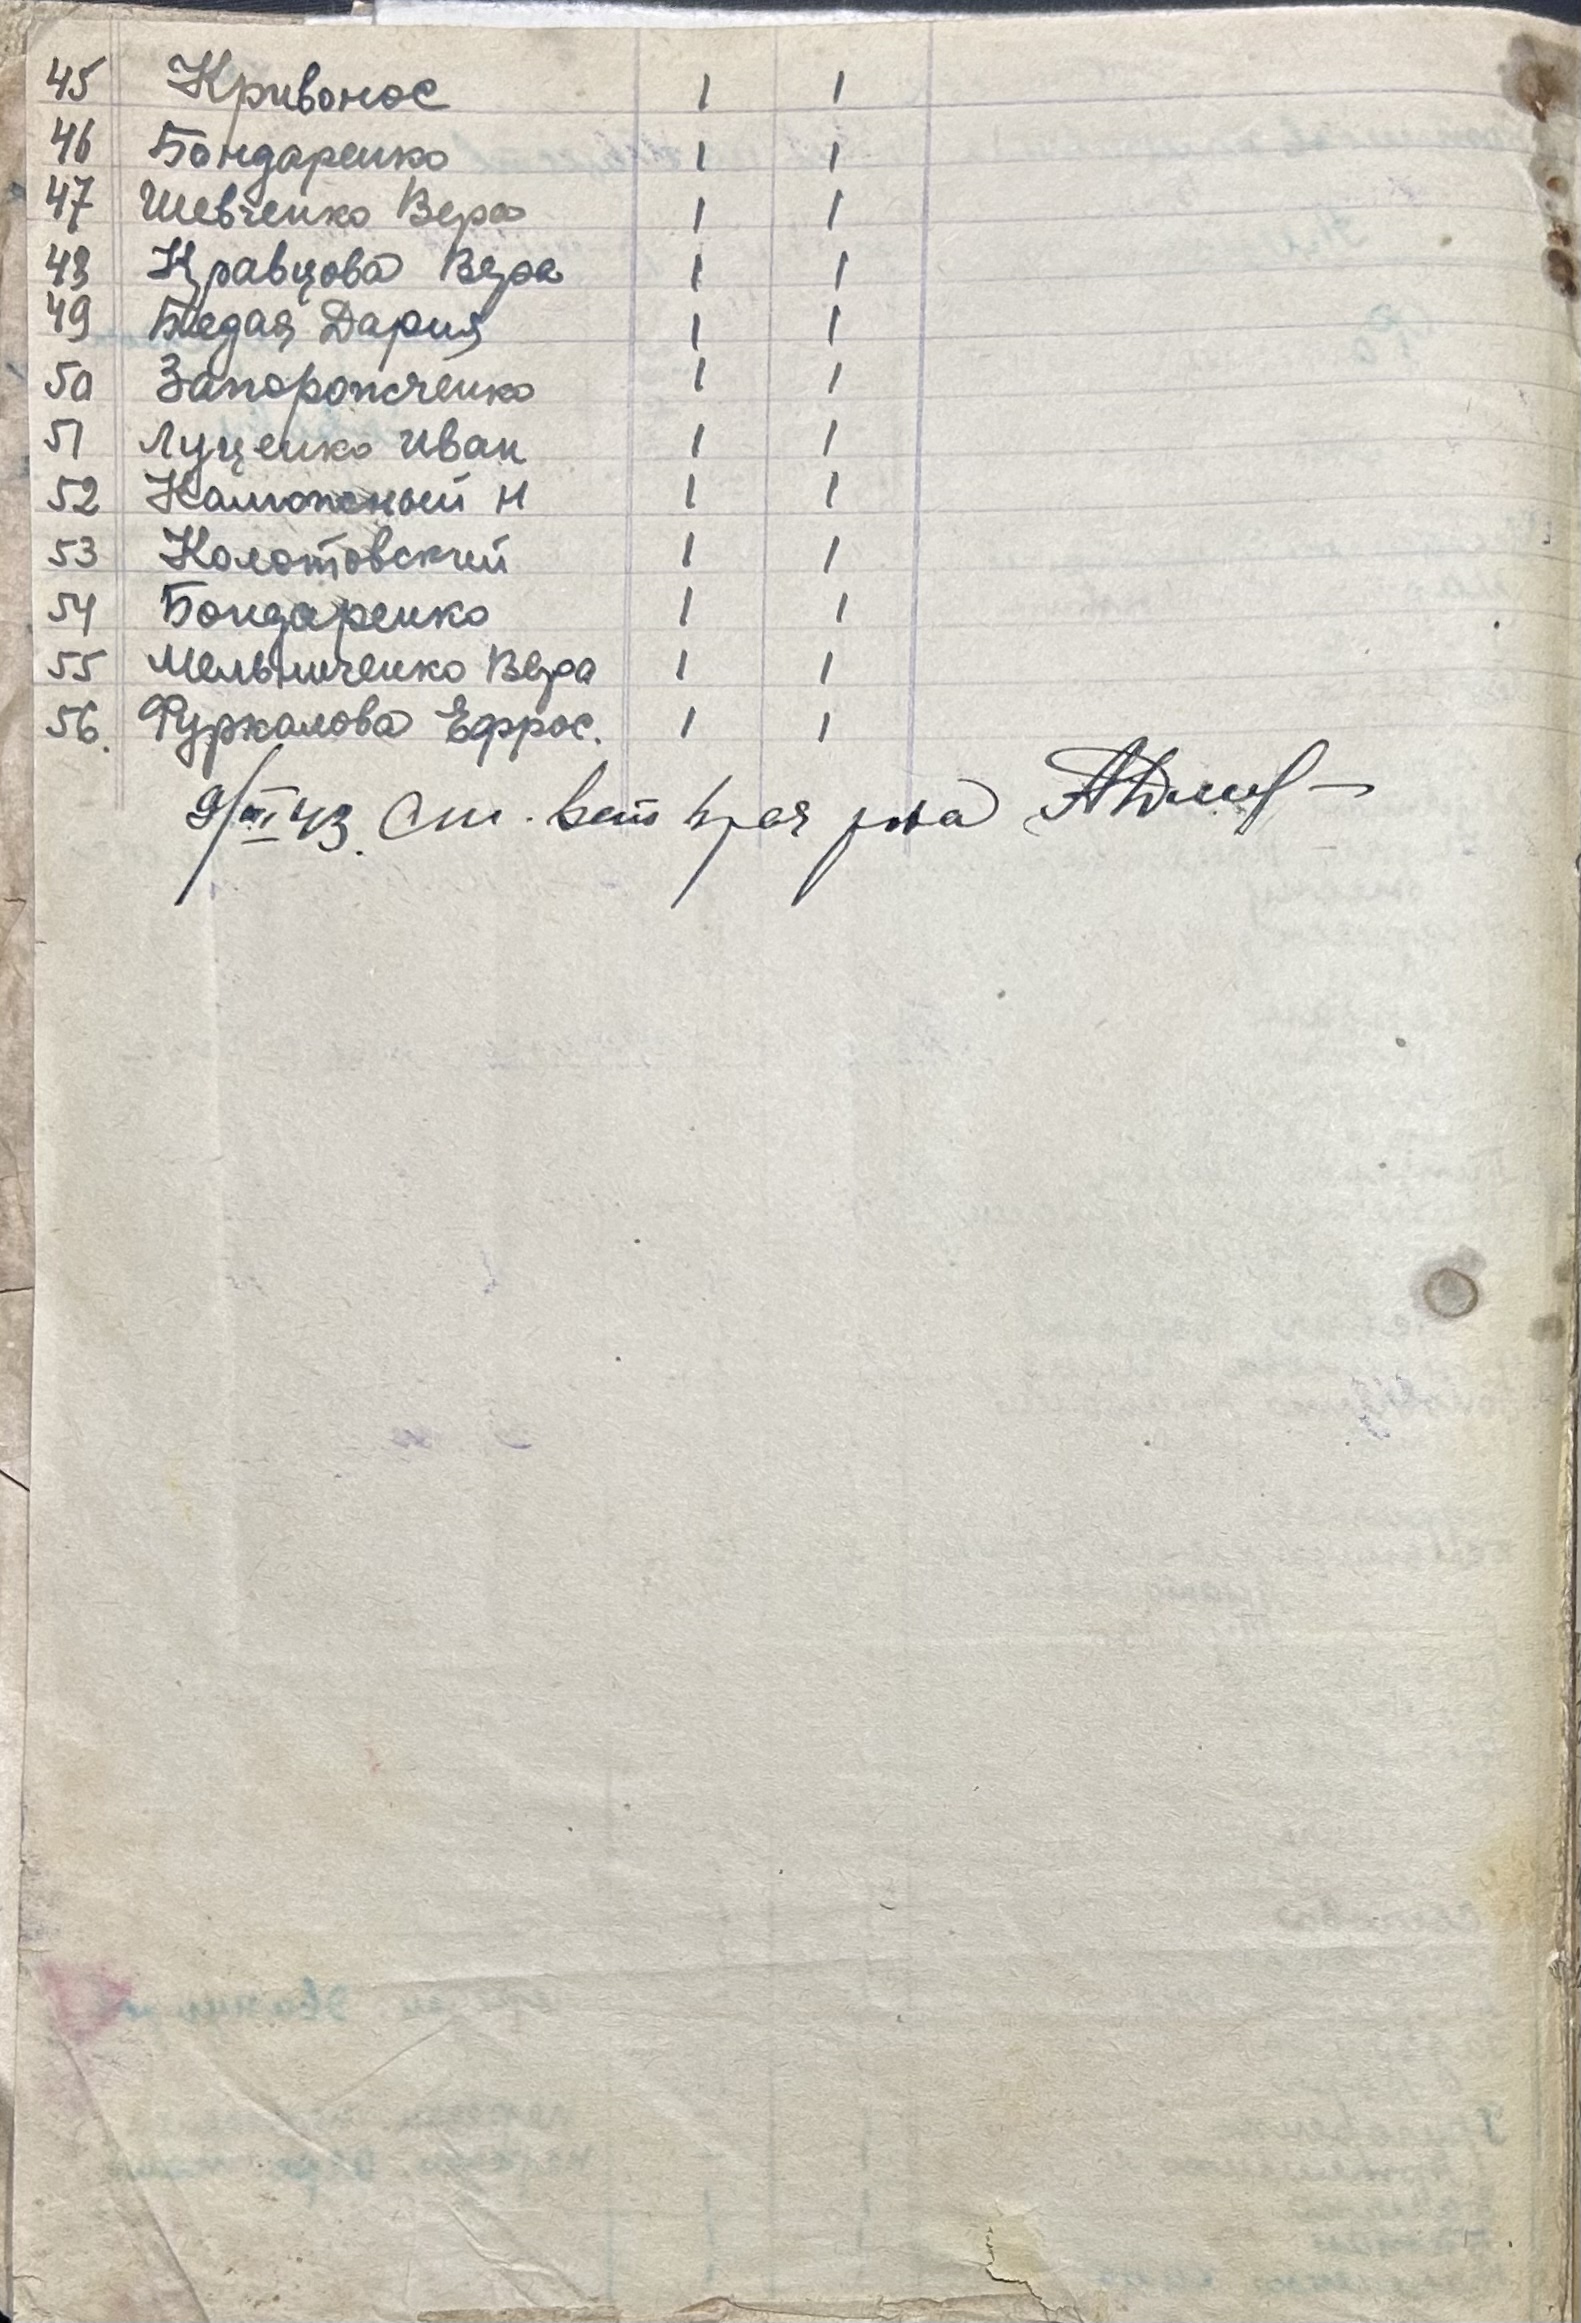 45 Кривонос 1 1
46 Бондаренко 1 1
47 Шевченко Вера 1 1
48 Кравцова Вера 1 1
49 Бледая Дария 1 1
50 Запорожченко 1 1
51 Луценко Иван 1 1
52 Калюжный Н 1 1
53 Колотовский 1 1
54 Бондаренко 1 1
55 Мельниченко Вера 1 1
56. Фуркалова Ефрос. 1 1
9/III 43. Ст. вет врач р-на